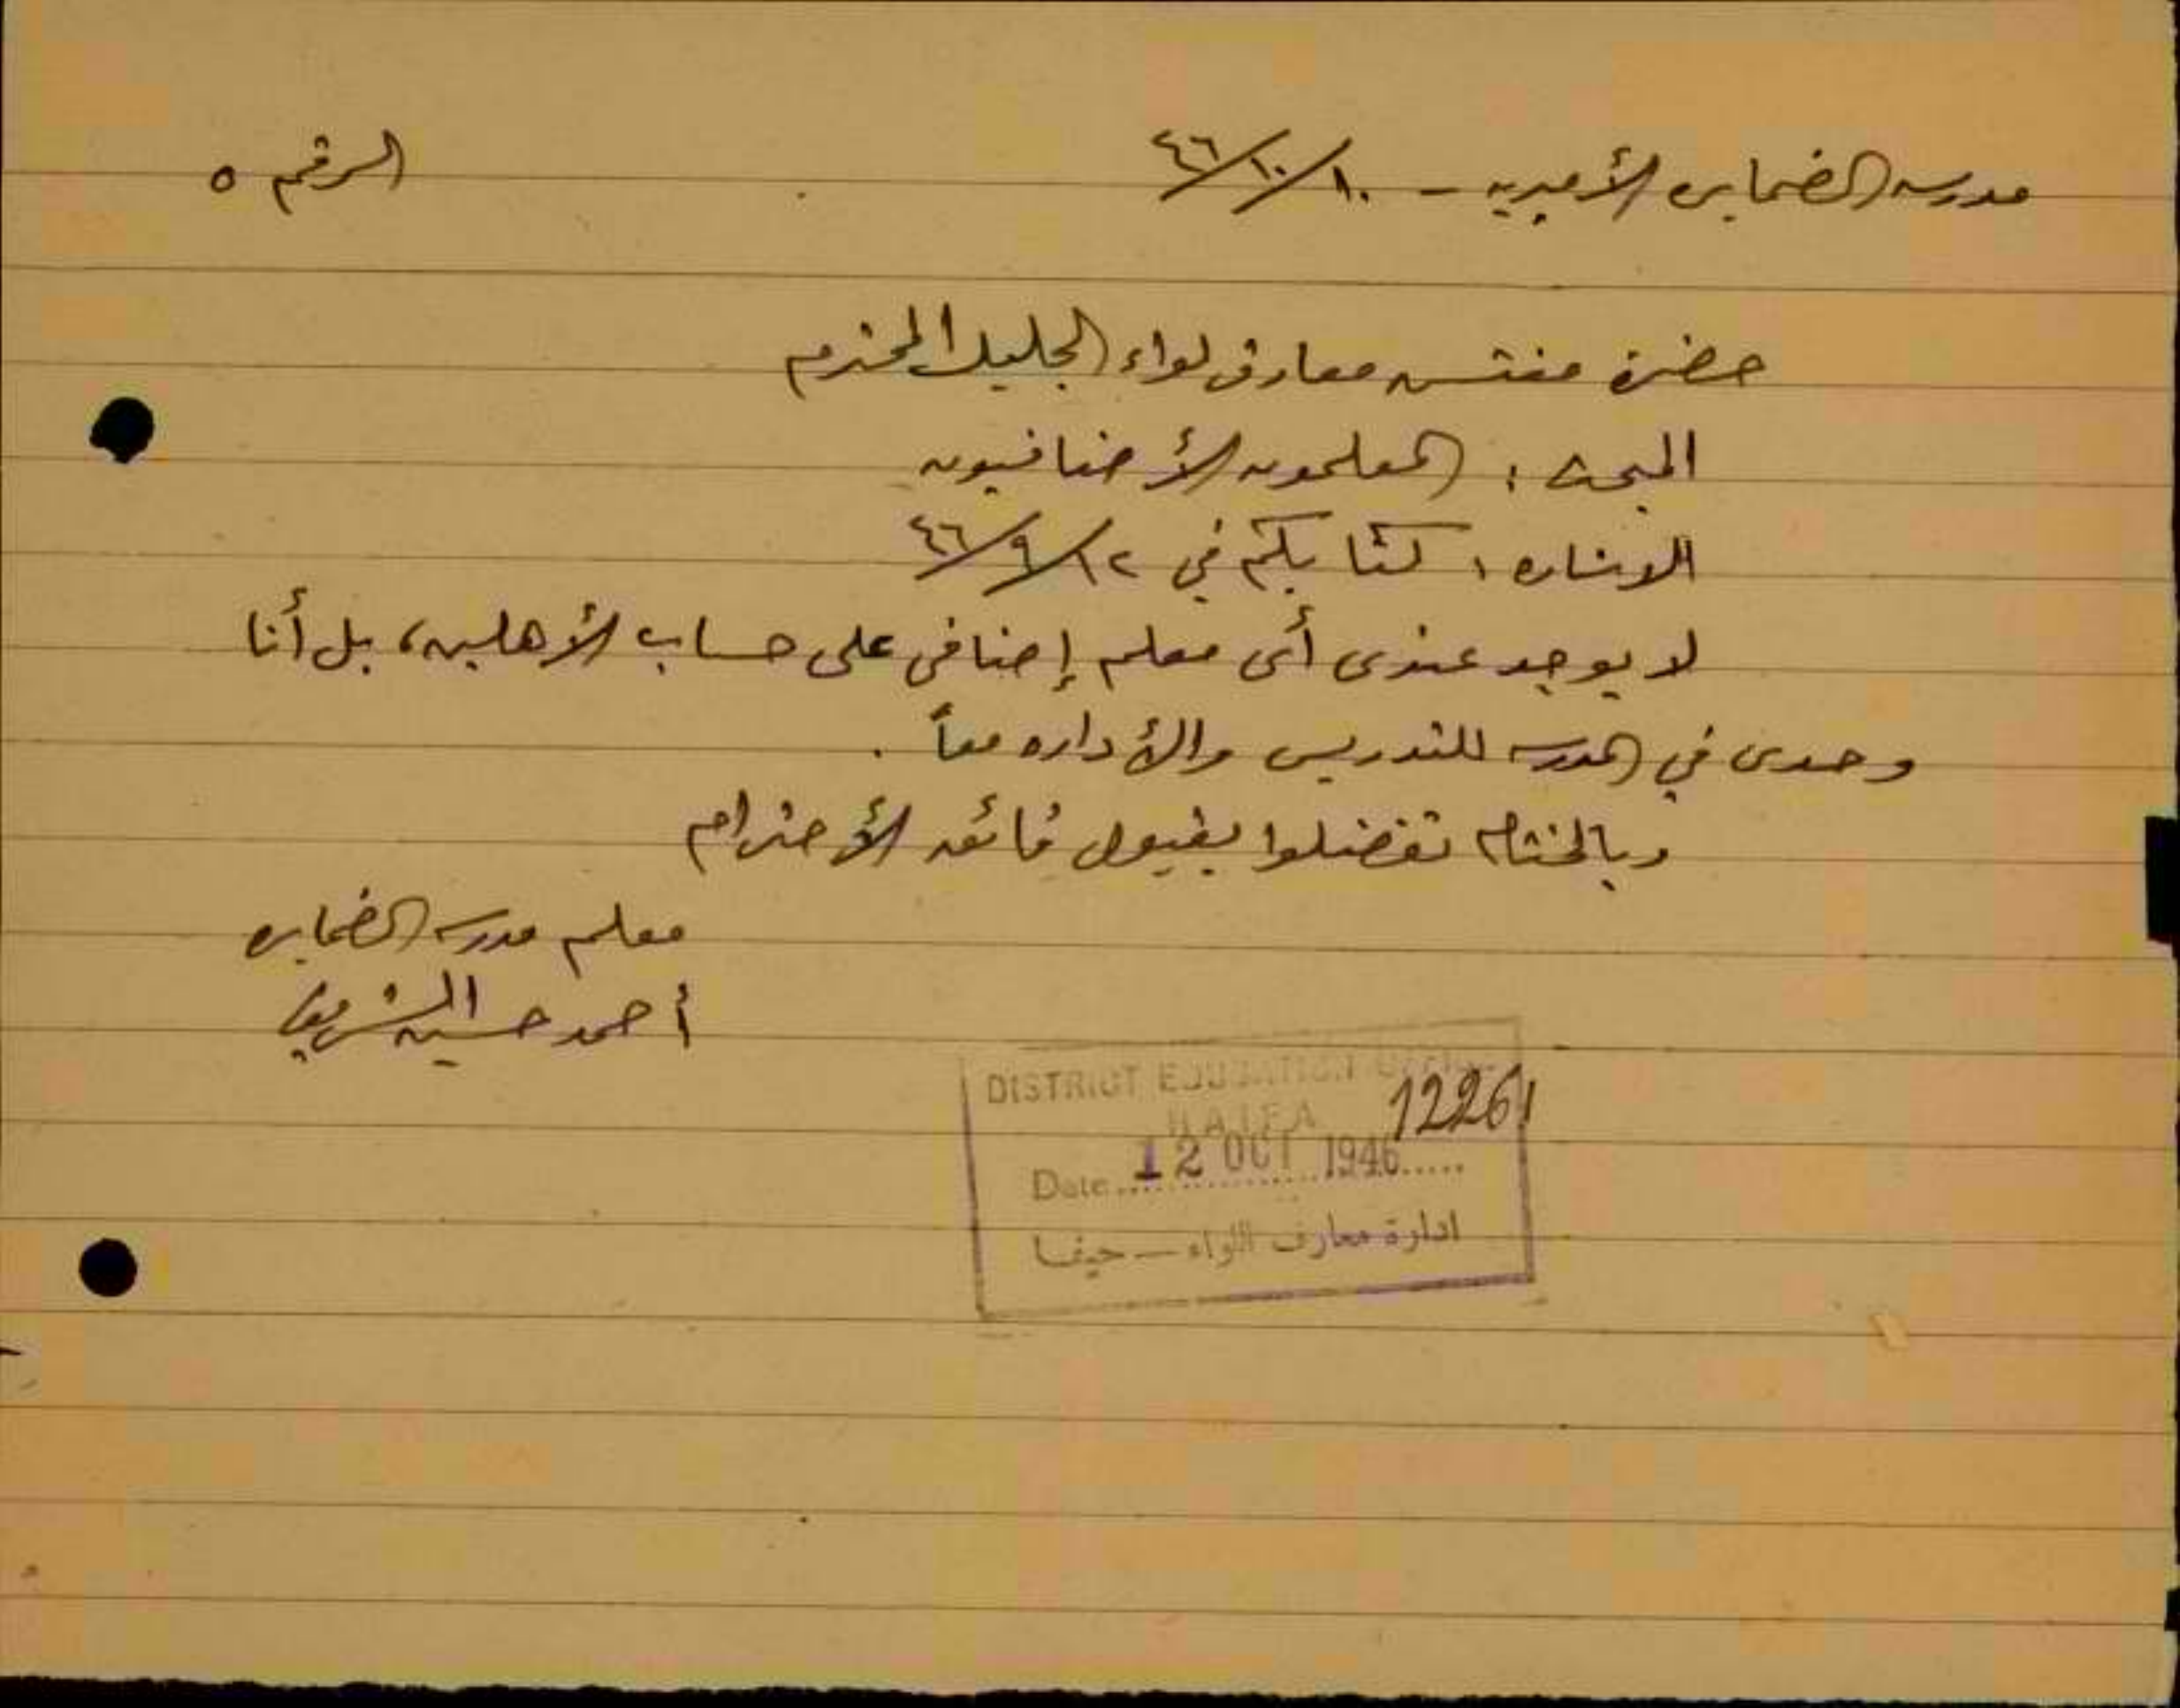 مدرسه الضمايره الأميريه - ١٠/١٠/٤٦ الرقم ٥
حضرة مفتش معارف لواء الجليل المحترم
المبحث : المعلمون الأضافيون
الاشاره : كتابكم في ١٢/٩/٤٦
لا يوجد عندى أى معلم إضافى على حساب الأهلين، بل أنا
وحدى في المدرسه للتدريس والأداره معاً .
وبالختام تفضلوا بقبول فائق الأحترام
معلم مدرسه الضمايره
أحمد حسين الشريف
DISTRICT EDUCATION OFFICE
12261
HAIFA
Date 12 OCT 1946
ادارة معارف اللواء — حيفا